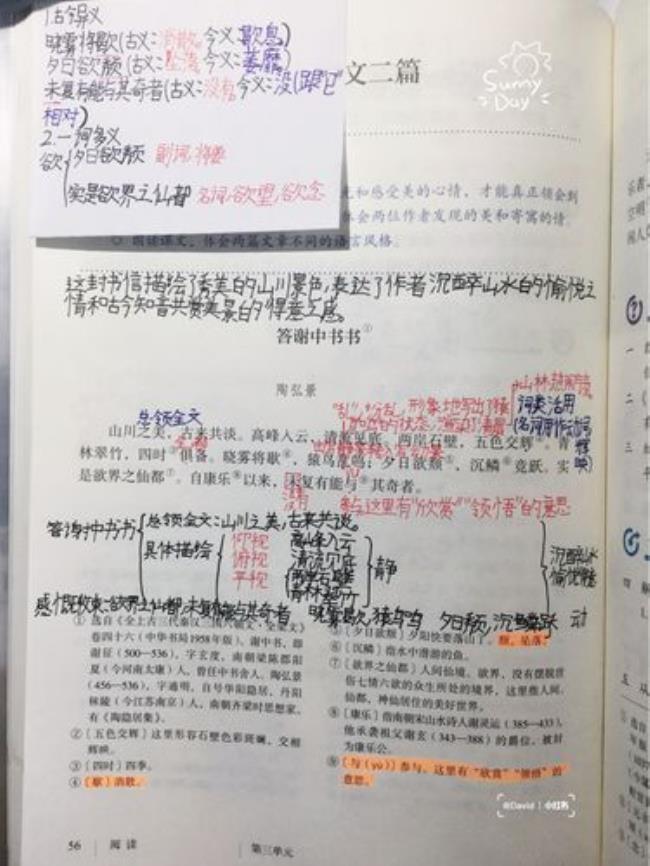 1.古今异义
晓雾将歇(古义:消散。今义:歇息)
夕日欲颓(古义:坠落 今义:萎靡)
未复有能与其奇者(古义:没有 今义:没(跟"已"
相对)
2.一词多义
欲 夕日欲颓 副词,将要
实是欲界之仙都 名词,欲望,欲念
文二篇
Sunny
Day
和感受美的心情,才能真正领会到
体会两位作者发现的美和寄寓的情。
朗读课文,体会两篇文章不同的语言风格。
这封书信描绘了秀美的山川景色,表达了作者沉醉山水的愉悦之
情和古今知音共赏美景的得意之感。
答谢中书书①
陶弘景
总领全文
词类活用
(名词用作动词
山川之美,古来共谈。高峰入云,清流见底。两岸石壁,五色交辉②。青
林翠竹,四时③俱备。晓雾将歇④,猿鸟乱鸣;夕日欲颓⑤,沉鳞⑥竞跃。实
是欲界之仙都⑦。自康乐⑧以来,未复有能与⑨其奇者。
没有
参与,这里有"欣赏""领悟"的意思
答谢中书书
总领全文:山川之美,古来共谈。
具体描绘
仰视 高峰入云
俯视 清流见底
平视 两岸石壁
静
沉醉山水
动
① 选自《全上古三代秦汉三国六朝文·全梁文》
卷四十六(中华书局1958年版)。谢中书,即
谢征(500—536),字玄度,南朝梁陈郡阳
夏(今河南太康)人,曾任中书舍人。陶弘景
(456—536),字通明,自号华阳隐居,丹阳
秣陵(今江苏南京)人,南朝齐梁时思想家,
有《陶隐居集》。
②〔五色交辉〕这里形容石壁色彩斑斓,交相
辉映。
③〔四时〕四季。
④〔歇〕消散。
⑤〔夕日欲颓〕夕阳快要落山了。颓,坠落。
⑥〔沉鳞〕指水中潜游的鱼。
⑦〔欲界之仙都〕人间仙境。欲界,没有摆脱世
俗七情六欲的众生所处的境界,这里指人间。
仙都,神仙居住的美好世界。
⑧〔康乐〕指南朝宋山水诗人谢灵运(385—433),
他承袭祖父谢玄(343—388)的爵位,被封
为康乐公。
⑨〔与(yù)〕参与,这里有"欣赏""领悟"的
意思。
@David | 小红书
56 阅读 第三单元